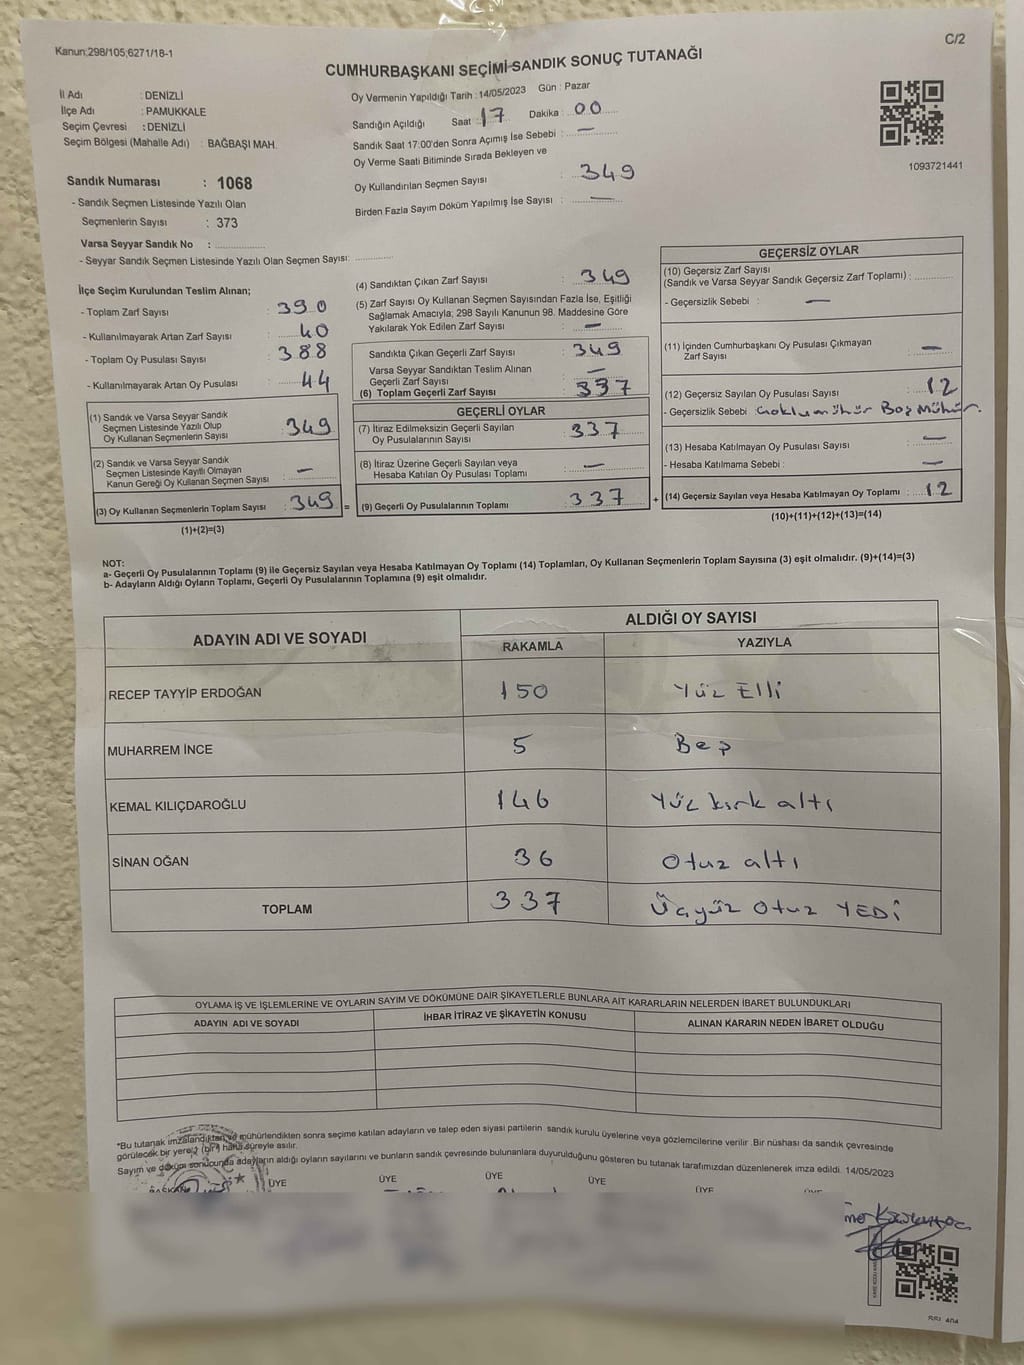 Kanun;298/105;6271/18-1
C/2
CUMHURBAŞKANI SEÇİMİ SANDIK SONUÇ TUTANAĞI
İl Adı : DENİZLİ
İlçe Adı : PAMUKKALE
Seçim Çevresi : DENİZLİ
Seçim Bölgesi (Mahalle Adı) : BAĞBAŞI MAH.
Oy Vermenin Yapıldığı Tarih : 14/05/2023 Gün : Pazar
Sandığın Açıldığı Saat : 17 Dakika : 00
Sandık Saat 17:00'den Sonra Açımış İse Sebebi : —
Oy Verme Saati Bitiminde Sırada Bekleyen ve
Oy Kullandırılan Seçmen Sayısı : 349
Birden Fazla Sayım Döküm Yapılmış İse Sayısı : —
1093721441
Sandık Numarası : 1068
- Sandık Seçmen Listesinde Yazılı Olan
Seçmenlerin Sayısı : 373
Varsa Seyyar Sandık No :
- Seyyar Sandık Seçmen Listesinde Yazılı Olan Seçmen Sayısı:
İlçe Seçim Kurulundan Teslim Alınan;
- Toplam Zarf Sayısı : 390
- Kullanılmayarak Artan Zarf Sayısı : 40
- Toplam Oy Pusulası Sayısı : 388
- Kullanılmayarak Artan Oy Pusulası : 44
(1) Sandık ve Varsa Seyyar Sandık
Seçmen Listesinde Yazılı Olup
Oy Kullanan Seçmenlerin Sayısı : 349
(2) Sandık ve Varsa Seyyar Sandık
Seçmen Listesinde Kayıtlı Olmayan
Kanun Gereği Oy Kullanan Seçmen Sayısı : —
(3) Oy Kullanan Seçmenlerin Toplam Sayısı : 349 =
(1)+(2)=(3)
(4) Sandıktan Çıkan Zarf Sayısı : 349
(5) Zarf Sayısı Oy Kullanan Seçmen Sayısından Fazla İse, Eşitliği
Sağlamak Amacıyla, 298 Sayılı Kanunun 98. Maddesine Göre
Yakılarak Yok Edilen Zarf Sayısı : —
Sandıkta Çıkan Geçerli Zarf Sayısı : 349
Varsa Seyyar Sandıktan Teslim Alınan
Geçerli Zarf Sayısı : —
(6) Toplam Geçerli Zarf Sayısı : 337
GEÇERLİ OYLAR
(7) İtiraz Edilmeksizin Geçerli Sayılan
Oy Pusulalarının Sayısı : 337
(8) İtiraz Üzerine Geçerli Sayılan veya
Hesaba Katılan Oy Pusulası Toplamı : —
(9) Geçerli Oy Pusulalarının Toplamı : 337 +
GEÇERSİZ OYLAR
(10) Geçersiz Zarf Sayısı
(Sandık ve Varsa Seyyar Sandık Geçersiz Zarf Toplamı) :
- Geçersizlik Sebebi : —
(11) İçinden Cumhurbaşkanı Oy Pusulası Çıkmayan
Zarf Sayısı : —
(12) Geçersiz Sayılan Oy Pusulası Sayısı : 12
- Geçersizlik Sebebi : Boş Mühür.
(13) Hesaba Katılmayan Oy Pusulası Sayısı : —
- Hesaba Katılmama Sebebi : —
(14) Geçersiz Sayılan veya Hesaba Katılmayan Oy Toplamı : 12
(10)+(11)+(12)+(13)=(14)
NOT:
a- Geçerli Oy Pusulalarının Toplamı (9) ile Geçersiz Sayılan veya Hesaba Katılmayan Oy Toplamı (14) Toplamları, Oy Kullanan Seçmenlerin Toplam Sayısına (3) eşit olmalıdır. (9)+(14)=(3)
b- Adayların Aldığı Oyların Toplamı, Geçerli Oy Pusulalarının Toplamına (9) eşit olmalıdır.
ADAYIN ADI VE SOYADI ALDIĞI OY SAYISI
RAKAMLA YAZIYLA
RECEP TAYYİP ERDOĞAN 150 Yüz Elli
MUHARREM İNCE 5 Beş
KEMAL KILIÇDAROĞLU 146 Yüz kırk altı
SİNAN OĞAN 36 Otuz altı
TOPLAM 337 Üçyüz Otuz YEDİ
OYLAMA İŞ VE İŞLEMLERİNE VE OYLARIN SAYIM VE DÖKÜMÜNE DAİR ŞİKAYETLERLE BUNLARA AİT KARARLARIN NELERDEN İBARET BULUNDUKLARI
ADAYIN ADI VE SOYADI İHBAR İTİRAZ VE ŞİKAYETİN KONUSU ALINAN KARARIN NEDEN İBARET OLDUĞU
*Bu tutanak imzalandıktan ve mühürlendikten sonra seçime katılan adayların ve talep eden siyasi partilerin sandık kurulu üyelerine veya gözlemcilerine verilir. Bir nüshası da sandık çevresinde
görülecek bir yere (bir) hafta süreyle asılır.
Sayım ve döküm sonucunda adayların aldığı oyların sayılarını ve bunların sandık çevresinde bulunanlara duyurulduğunu gösteren bu tutanak tarafımızdan düzenlenerek imza edildi. 14/05/2023
BAŞKAN ÜYE ÜYE ÜYE ÜYE ÜYE